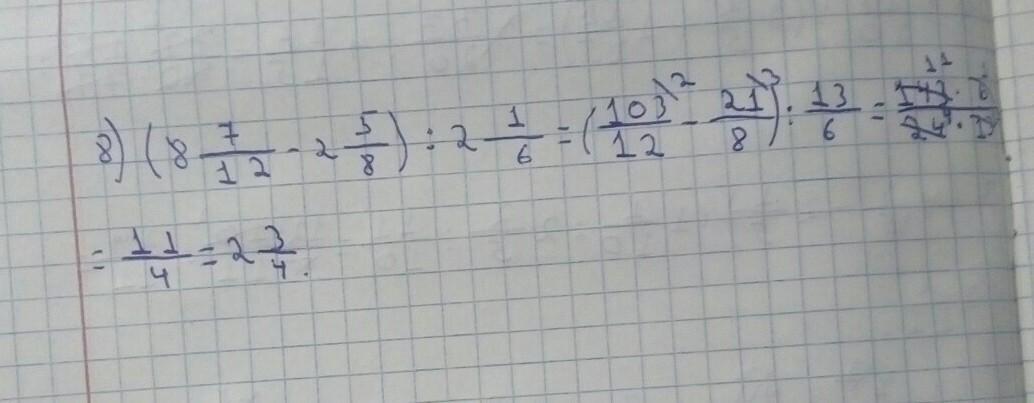 8) (8 7/12 - 2 5/8) : 2 1/6 = (103/12 \2 - 21/8 \3) : 13/6 = 143 11 · 6/24 4 · 13
= 11/4 = 2 3/4.